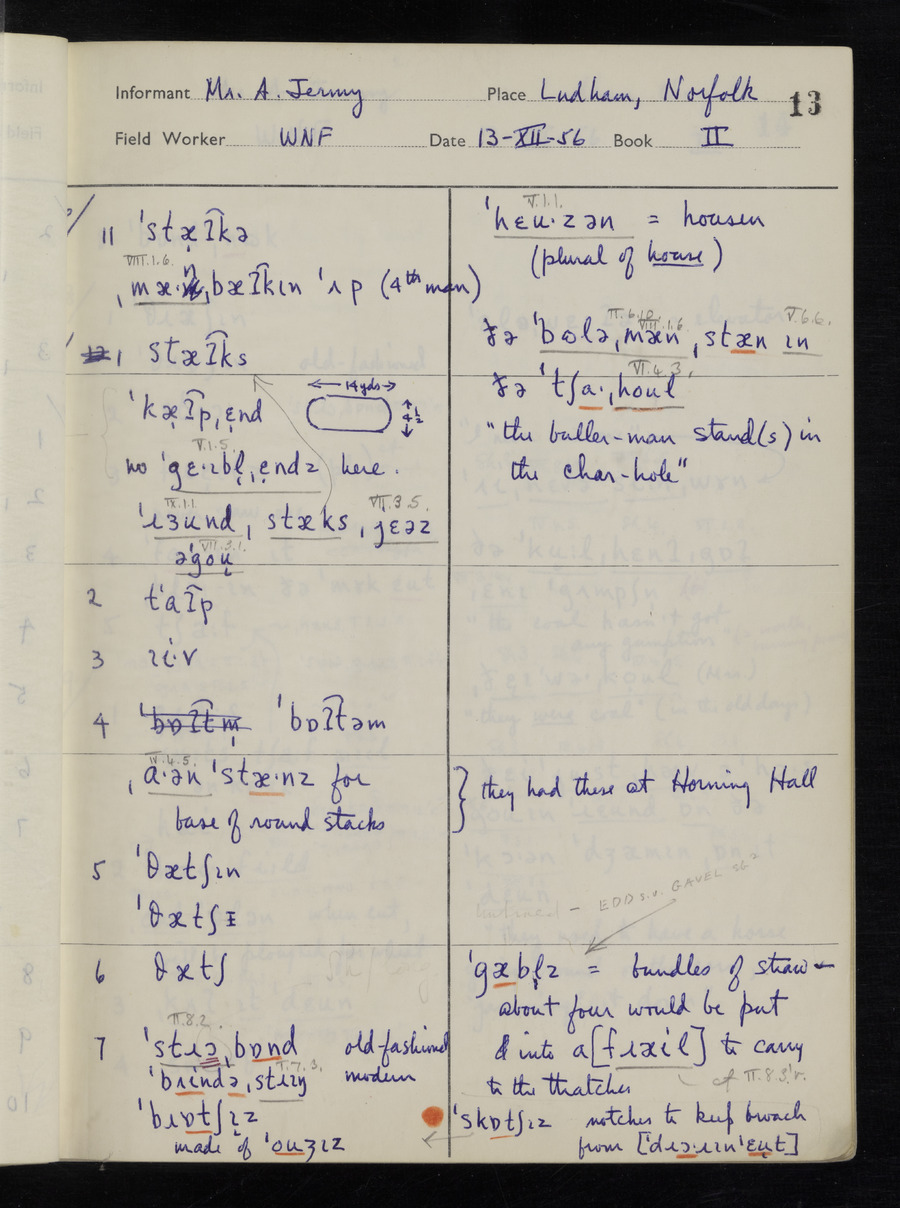 Informant Mr. A. Jermy Place Ludham, Norfolk 13
Field Worker WNF Date 13-XII-56 Book II
11 ˈstæɪkə
VIII.1.6.
ˌbæɪkɪn ˈɹp (4th man)
1 stæɪks
ˈkæɪpˌɛnd
← 14 yds →
4½
V.1.5
no ˈgɛ·ɪbl̩ˌɛndz here.
IX.1.1. VII.3.5.
ˈɹʒund, stæks, jɛəz
VII.3.1.
əˈgou
2 tʽaɪp
3 ɹi·v
4 ˈbɒɪtəm
IV.4.5.
ˌɑ·ən ˈstæ·nz for
base of round stacks
5 ˈθætʃɪn
ˈθætʃɪ
6 θætʃ
II.8.2.
7 ˈstɹɔˌbɒnd old fashioned
II.7.3.
ˈbɹɪndəˌstɹɪŋ modern
ˈbɹɒtʃɪz
made of ˈouʒɪz
V.1.1.
ˈhɛu·zən = housen
(plural of house)
II.6.10. VIII.1.6 V.6.6.
ðə ˈbɒləˌmæn ˌstæn ɪn
VI.4.3.
ðə ˈtʃɑ·ˌhoul
"the buller-man stand(s) in
the char-hole"
} they had these at Horning Hall
EDD s.v. GAVEL sb²
ˈgæbl̩z = bundles of straw
about four would be put
into a [fɹɪxil] to carry
to the thatcher cf II.8.3.
ˈskɒtʃɪz notches to keep broach
from [ˈdɹɔ·ɪn ˈɛut]